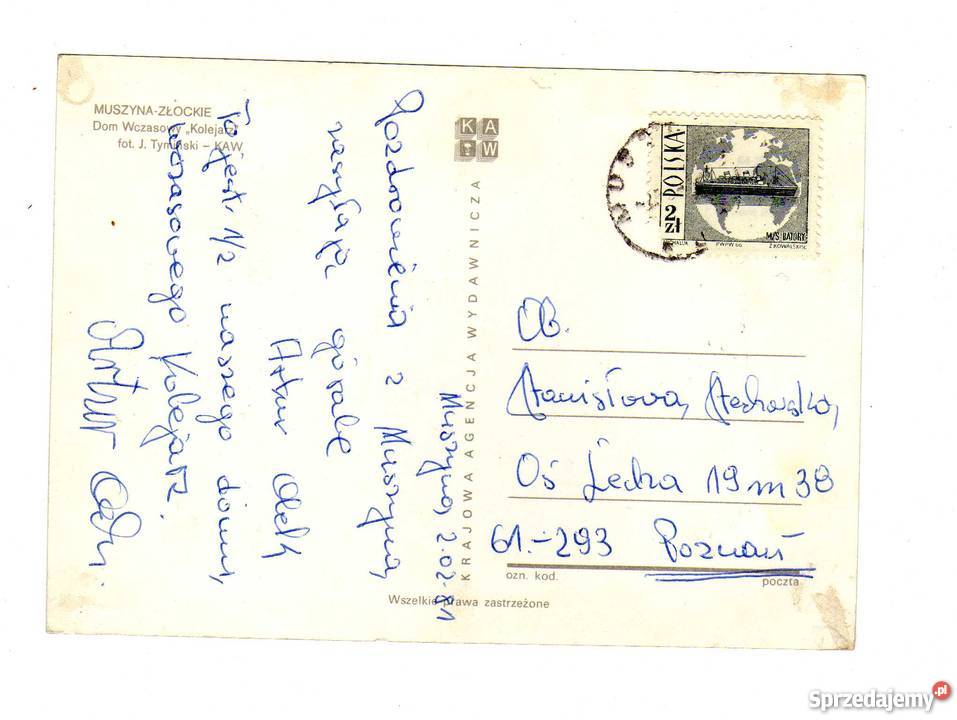 MUSZYNA-ZŁOCKIE
Dom Wczasowy „Kolejarz"
fot. J. Tymiński – KAW
K A
W
KRAJOWA AGENCJA WYDAWNICZA
Wszelkie prawa zastrzeżone
Muszyna, 2.02.81
Pozdrowienia z Muszyny,
zasyłają górale
Artur
To jest 1/2 naszego domu,
wczasowego Kolejarz.
Artur
POLSKA
2 zł
M/S BATORY
PWPW 66
Z. KOWALSKI SC.
MUS
Ob.
Stanisława
Oś Lecha 19 m 38
61-293 Poznań
ozn. kod.
poczta
Sprzedajemy.pl